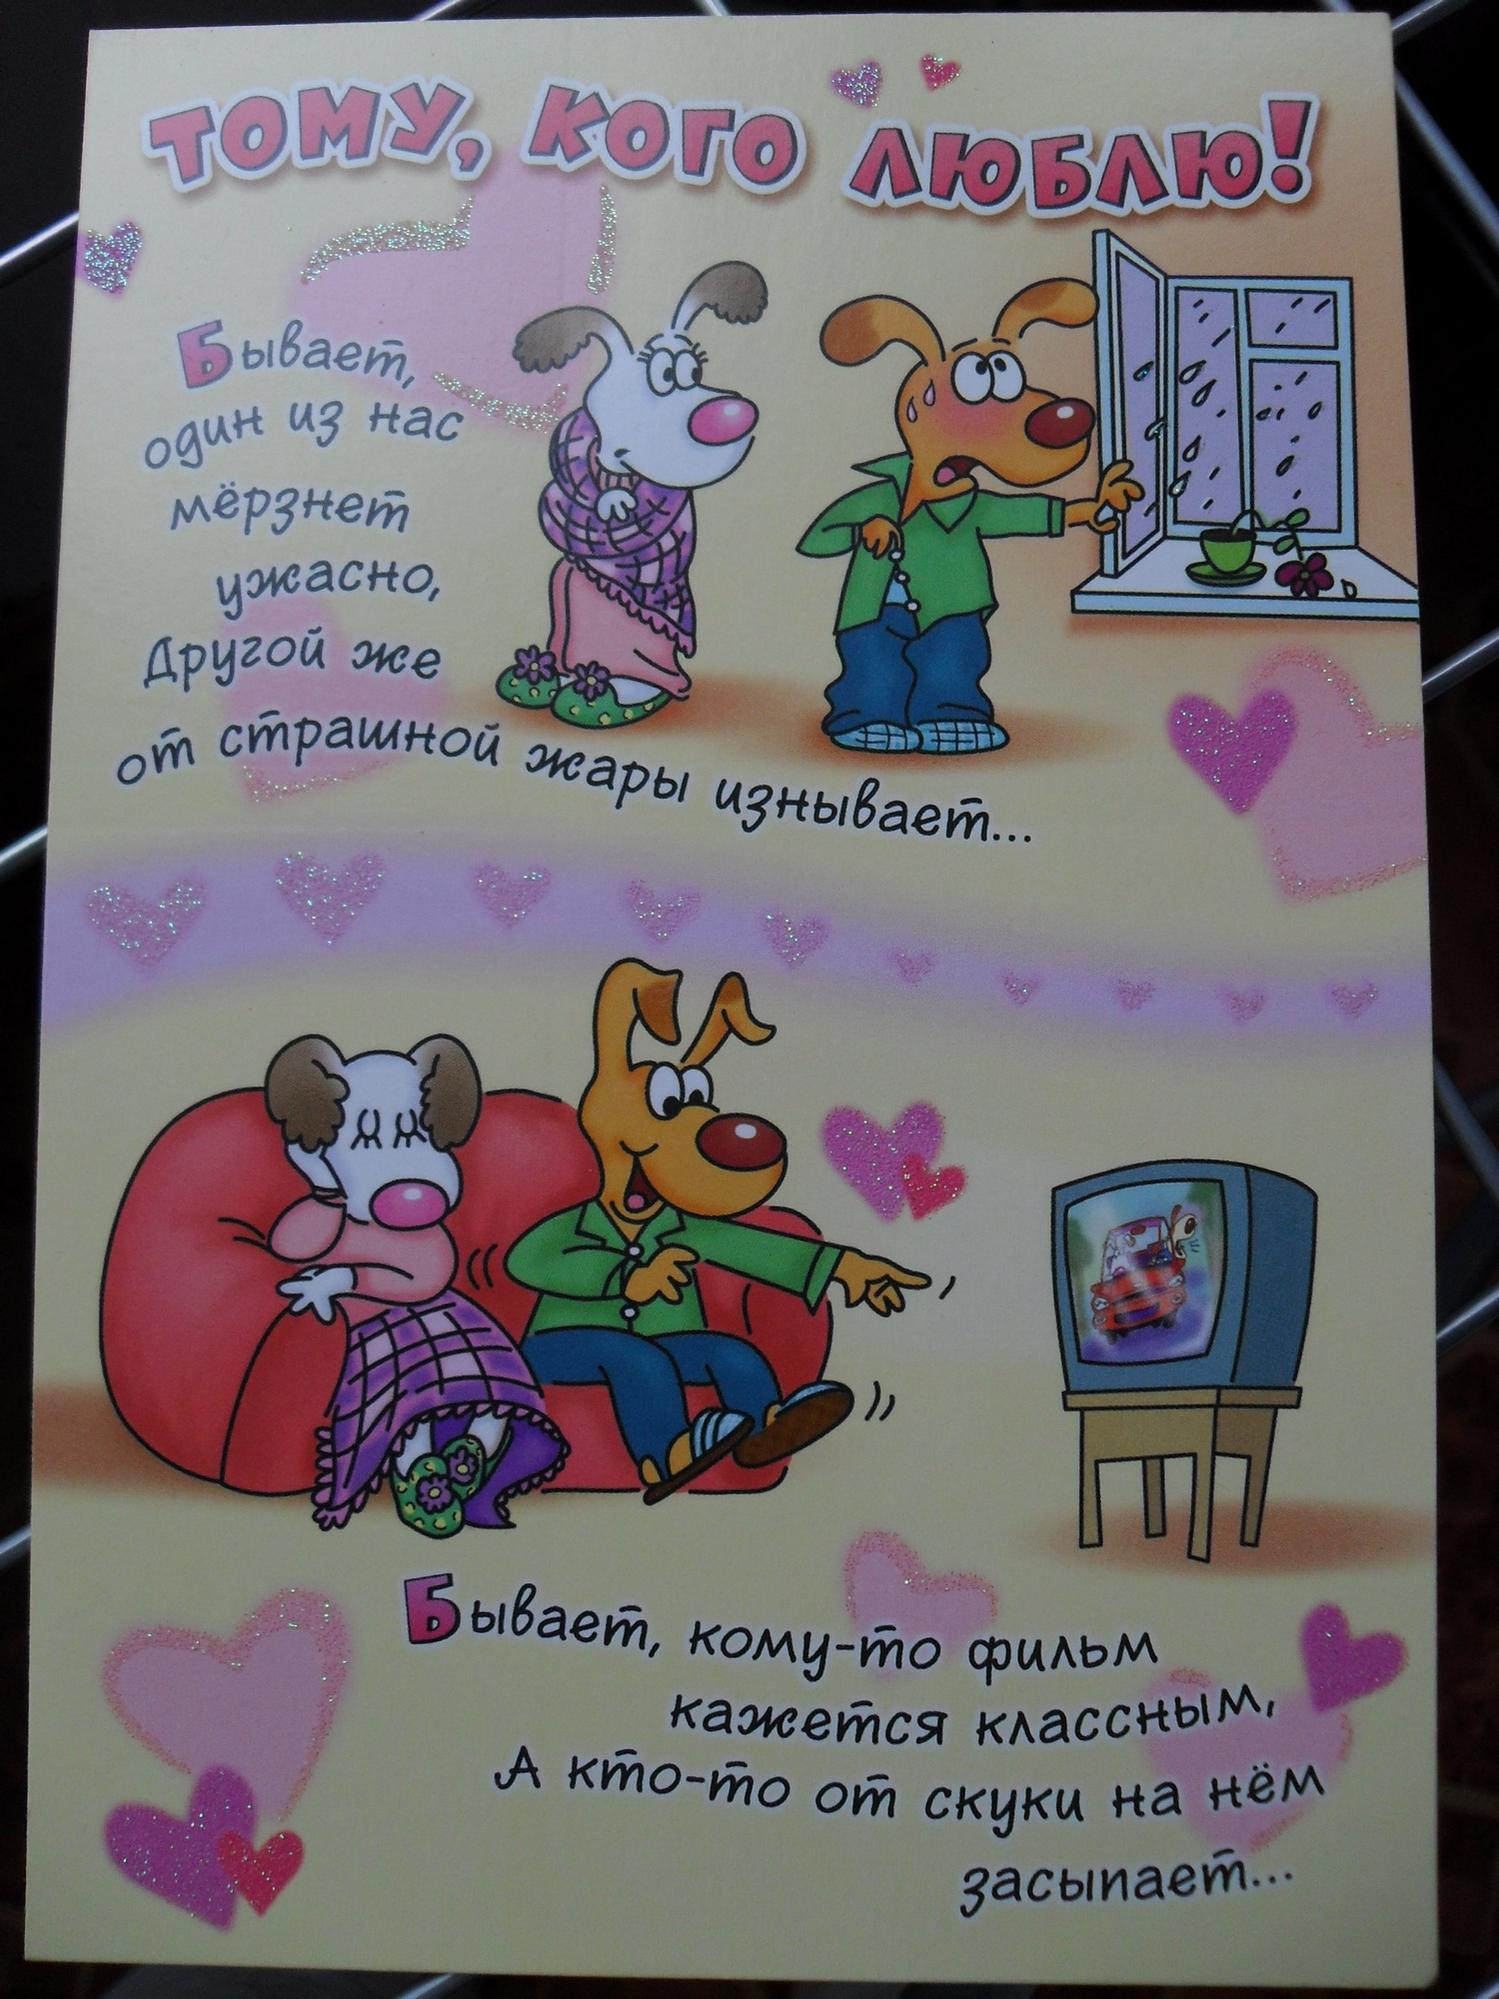 ТОМУ, КОГО ЛЮБЛЮ!
Бывает,
один из нас
мёрзнет
ужасно,
Другой же
от страшной жары изнывает...
Бывает, кому-то фильм
кажется классным,
А кто-то от скуки на нём
засыпает...